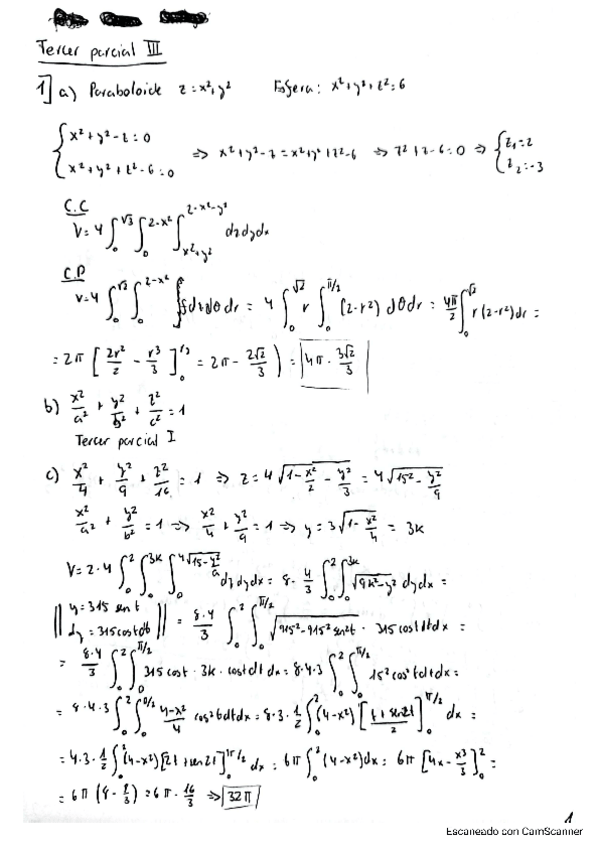 Tercer parcial III
1] a) Paraboloide z = x²+y² Esfera: x²+y²+z²=6
{ x²+y²-z=0
{ x²+y²+z²-6=0 ⇒ x²+y²-z = x²+y²+z²-6 ⇒ z²+z-6=0 ⇒ { z₁=2
z₂=-3
C.C
V=4 ∫₀^√3 ∫₀^2-x² ∫_x²+y²^2-x²-y² dz dy dx
C.P
V=4 ∫₀^√2 ∫₀^2-x² ∫ dz dθ dr = 4 ∫₀^√2 r ∫₀^π/2 (2-r²) dθ dr = 4π/2 ∫₀^√2 r(2-r²) dr =
= 2π [ 2r²/2 - r³/3 ]₀ = 2π - 2√2/3 ) = 4π · 3√2/3
b) x²/a² + y²/b² + z²/c² = 1
Tercer parcial I
c) x²/4 + y²/9 + z²/16 = 1 ⇒ z = 4 √(1 - x²/2 - y²/3) = 4 √(15² - y²/9)
x²/a² + y²/b² = 1 ⇒ x²/4 + y²/9 = 1 ⇒ y = 3 √(1 - x²/4) = 3k
V = 2·4 ∫₀^2 ∫₀^3k ∫₀^4√(15-y²/9) dz dy dx = 8· 4/3 ∫₀^2 ∫₀^3k √(9k²-y²) dy dx =
|| y=315 sen t
dy=315 cos t dt || = 8·4/3 ∫₀^2 ∫₀^π/2 √(915²-915² sen²t) · 315 cos t dt dx =
= 8·4/3 ∫₀^2 ∫₀^π/2 315 cos t · 3k · cos t dt dx = 8·4·3 ∫₀^2 ∫₀^π/2 15² cos² t dt dx =
= 8·4·3 ∫₀^2 ∫₀^π/2 4-x²/4 cos² t dt dx = 8·3· 1/2 ∫₀^2 (4-x²) [ t + sen 2t/2 ]₀^π/2 dx =
= 4·3· 1/2 ∫₀^2 (4-x²) [2t + sen 2t]₀^π/2 dx = 6π ∫₀^2 (4-x²) dx = 6π [4x - x³/3]₀^2 =
= 6π (8 - 8/3) = 6π · 16/3 ⇒ 32π
1
Escaneado con CamScanner